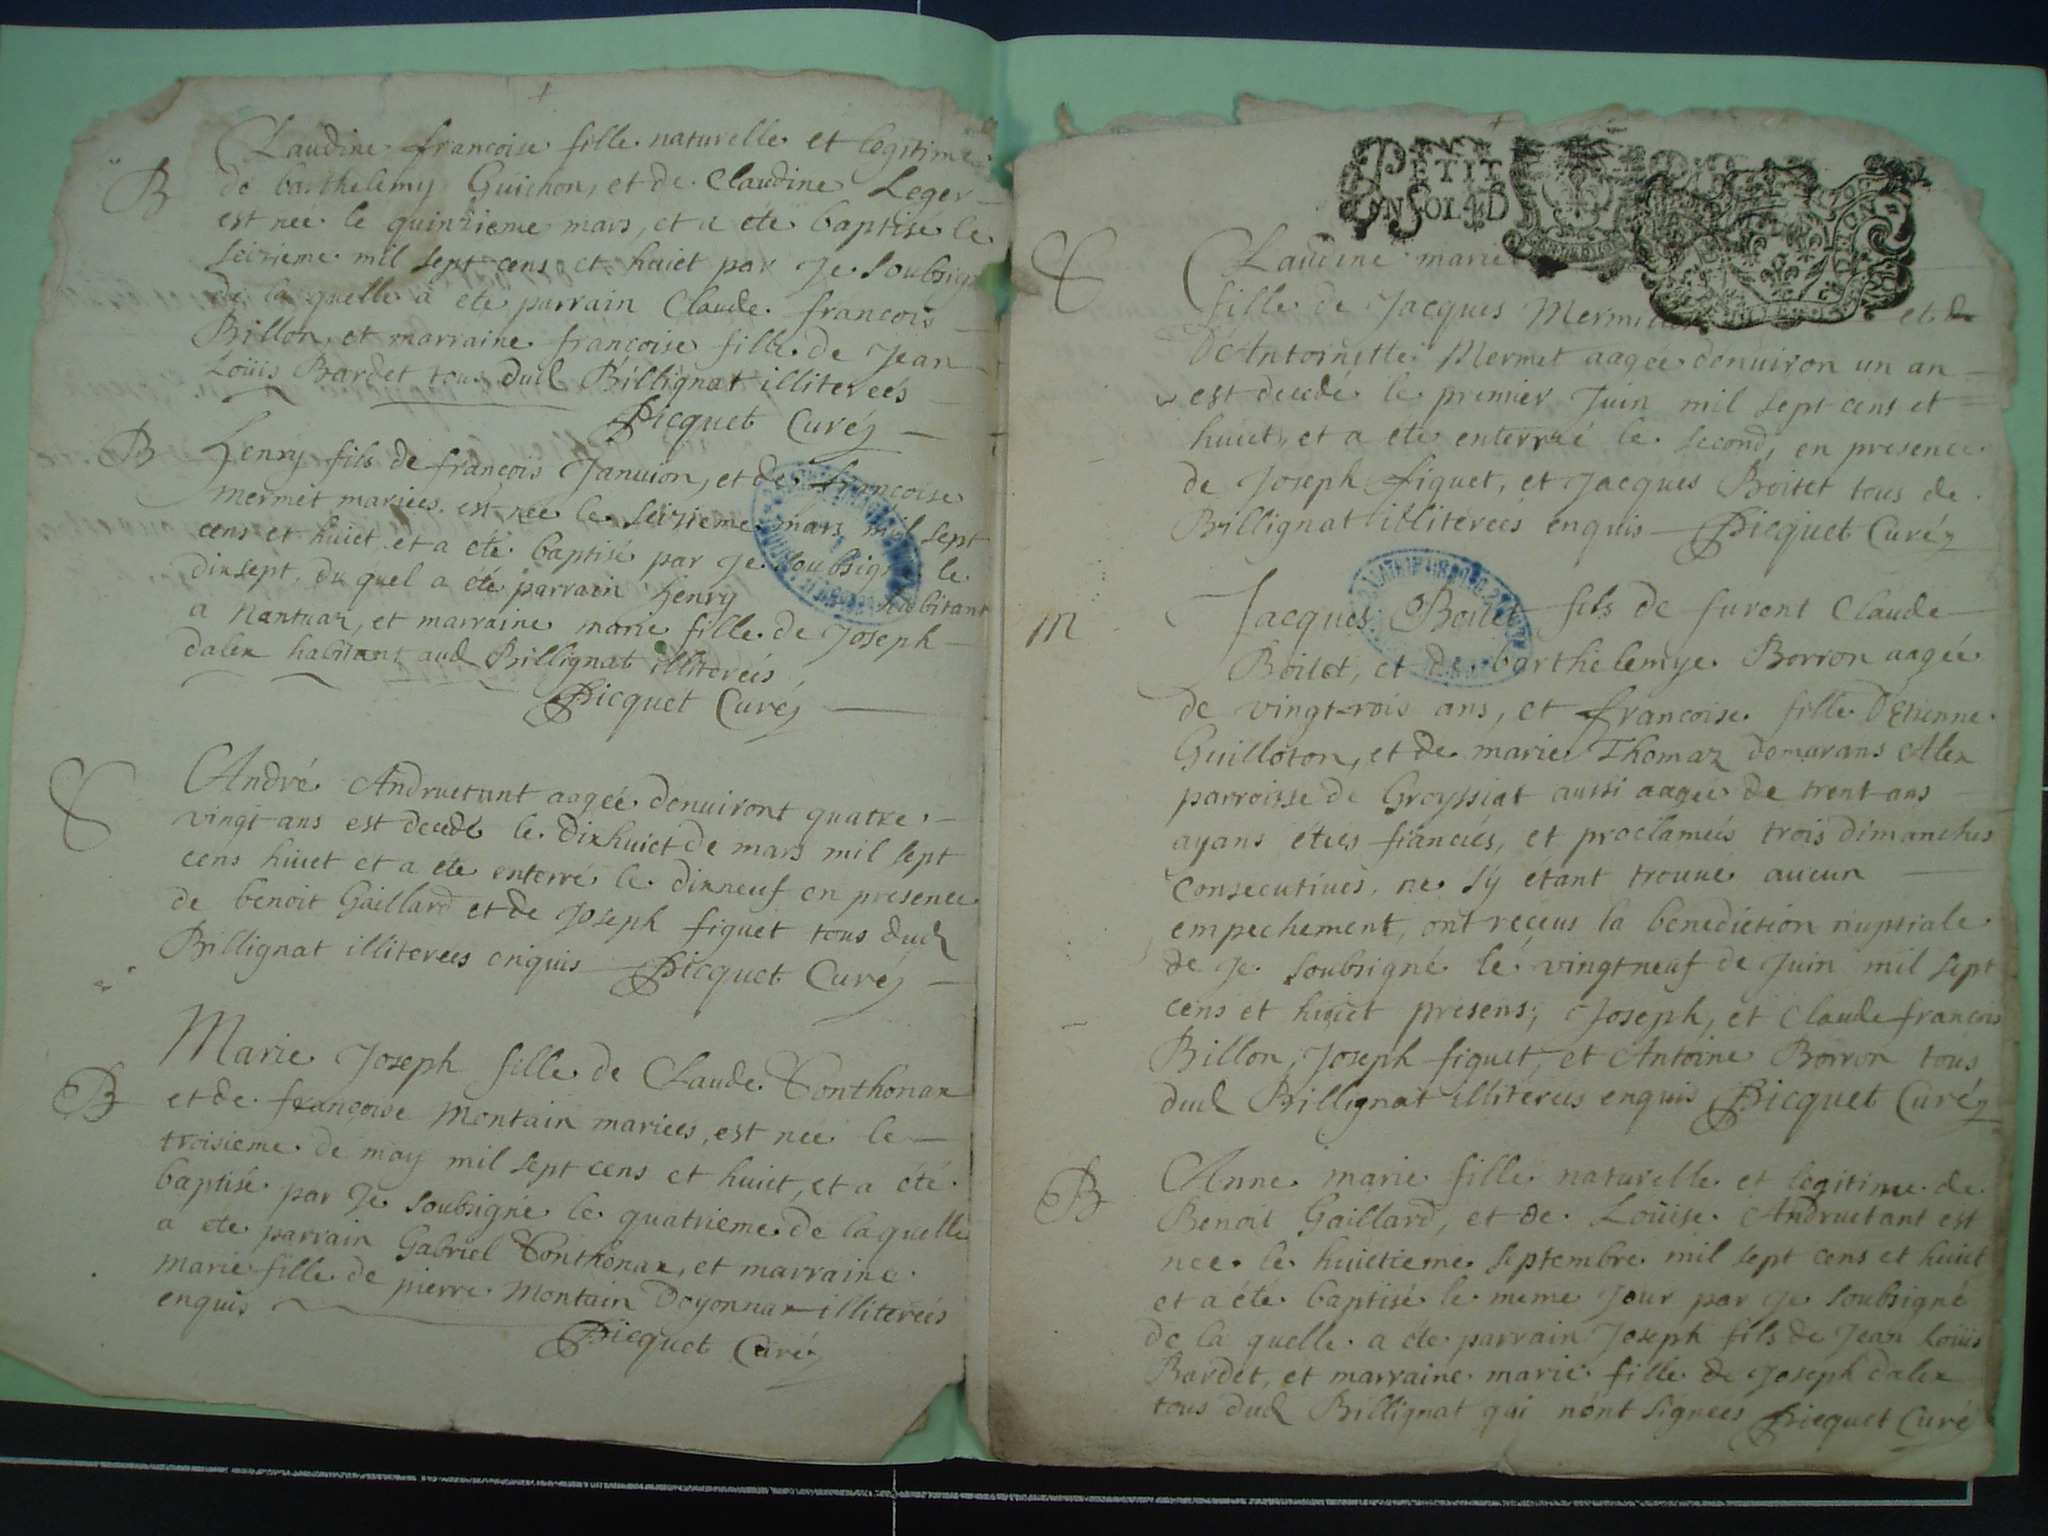 Claudine francoise fille naturelle et legitime
B
de barthelemy Guichon, et de Claudine Leger
est neé le quinzieme mars, et a eté baptisé le
seizieme mil sept cens et huict par Je soubsig
de la quelle a eté parrain Claude francois
Billon, et marraine francoise fille de Jean
Loüis Bardet tous dud Billignat illitereés
Picquet Curé
B
Henry fils de francois Januion, et de francoise
mermet mariées est née le seizieme mars mil sept
cens et huict et a eté baptisé par Je soubsigné le
dixsept, du quel a été parrain henry habitant
a nantuaz, et marraine marie fille de Joseph
dalex habitant aud Billignat illitereés
Picquet Curé
S
André Andruetant aageé denuiront quatre
vingt ans est decedé le dixhuict de mars mil sept
cens huict et a eté enterré le dixneuf en presence
de benoit Gaillard et de Joseph figuet tous dud
Billignat illitereés enquis Picquet Curé
Marie Joseph fille de Claude Tonthonax
B
et de françoise montain mariées, est née le
troisieme de may mil sept cens et huict, et a été
baptisé par Je soubsigné le quatrieme de laquelle
a eté parrain Gabriel Tonthonax, et marraine
marie fille de pierre montain Doyonnax illitereés
enquis
Picquet Curé
PETIT
UNSOL 4D
S
Claudine marie
fille de Jacques Mermet et de
D'Antoinette Mermet aageé denuiron un an
est decedé le premier Juin mil sept cens et
huict, et a eté enterré le second, en presence
de Joseph figuet, et Jacques Boitet tous de
Billignat illitereés enquis Picquet Curé
M
Jacques Boitet fils de furent Claude
Boitet, et de barthelemye Borron aageé
de vingtrois ans, et francoise fille D'Etienne
Guilloton, et de marie Thomaz demurans Alex
parroisse de Groyssiat aussi aageé de trent ans
ayans étées fianciés, et proclameés trois dimanches
consecutiues, ne sÿ étant trouué aucun
empechement, ont receus la benediction nuptiale
de Je soubsigné le vingtneuf de Juin mil sept
cens et huict presens; Joseph, et Claude francois
Billon, Joseph figuet, et Antoine Borron tous
dud Billignat illitereés enquis Picquet Curé
B
Anne marie fille naturelle et legitime de
Benoit Gaillard, et de Loüise Andruetant est
neé le huictieme septembre mil sept cens et huict
et a été baptisé le meme Jour par Je soubsigné
de la quelle a eté parrain Joseph fils de Jean Loüis
Bardet, et marraine marie fille de Joseph dalex
tous dud Billignat qui n'ont signeés Picquet Curé